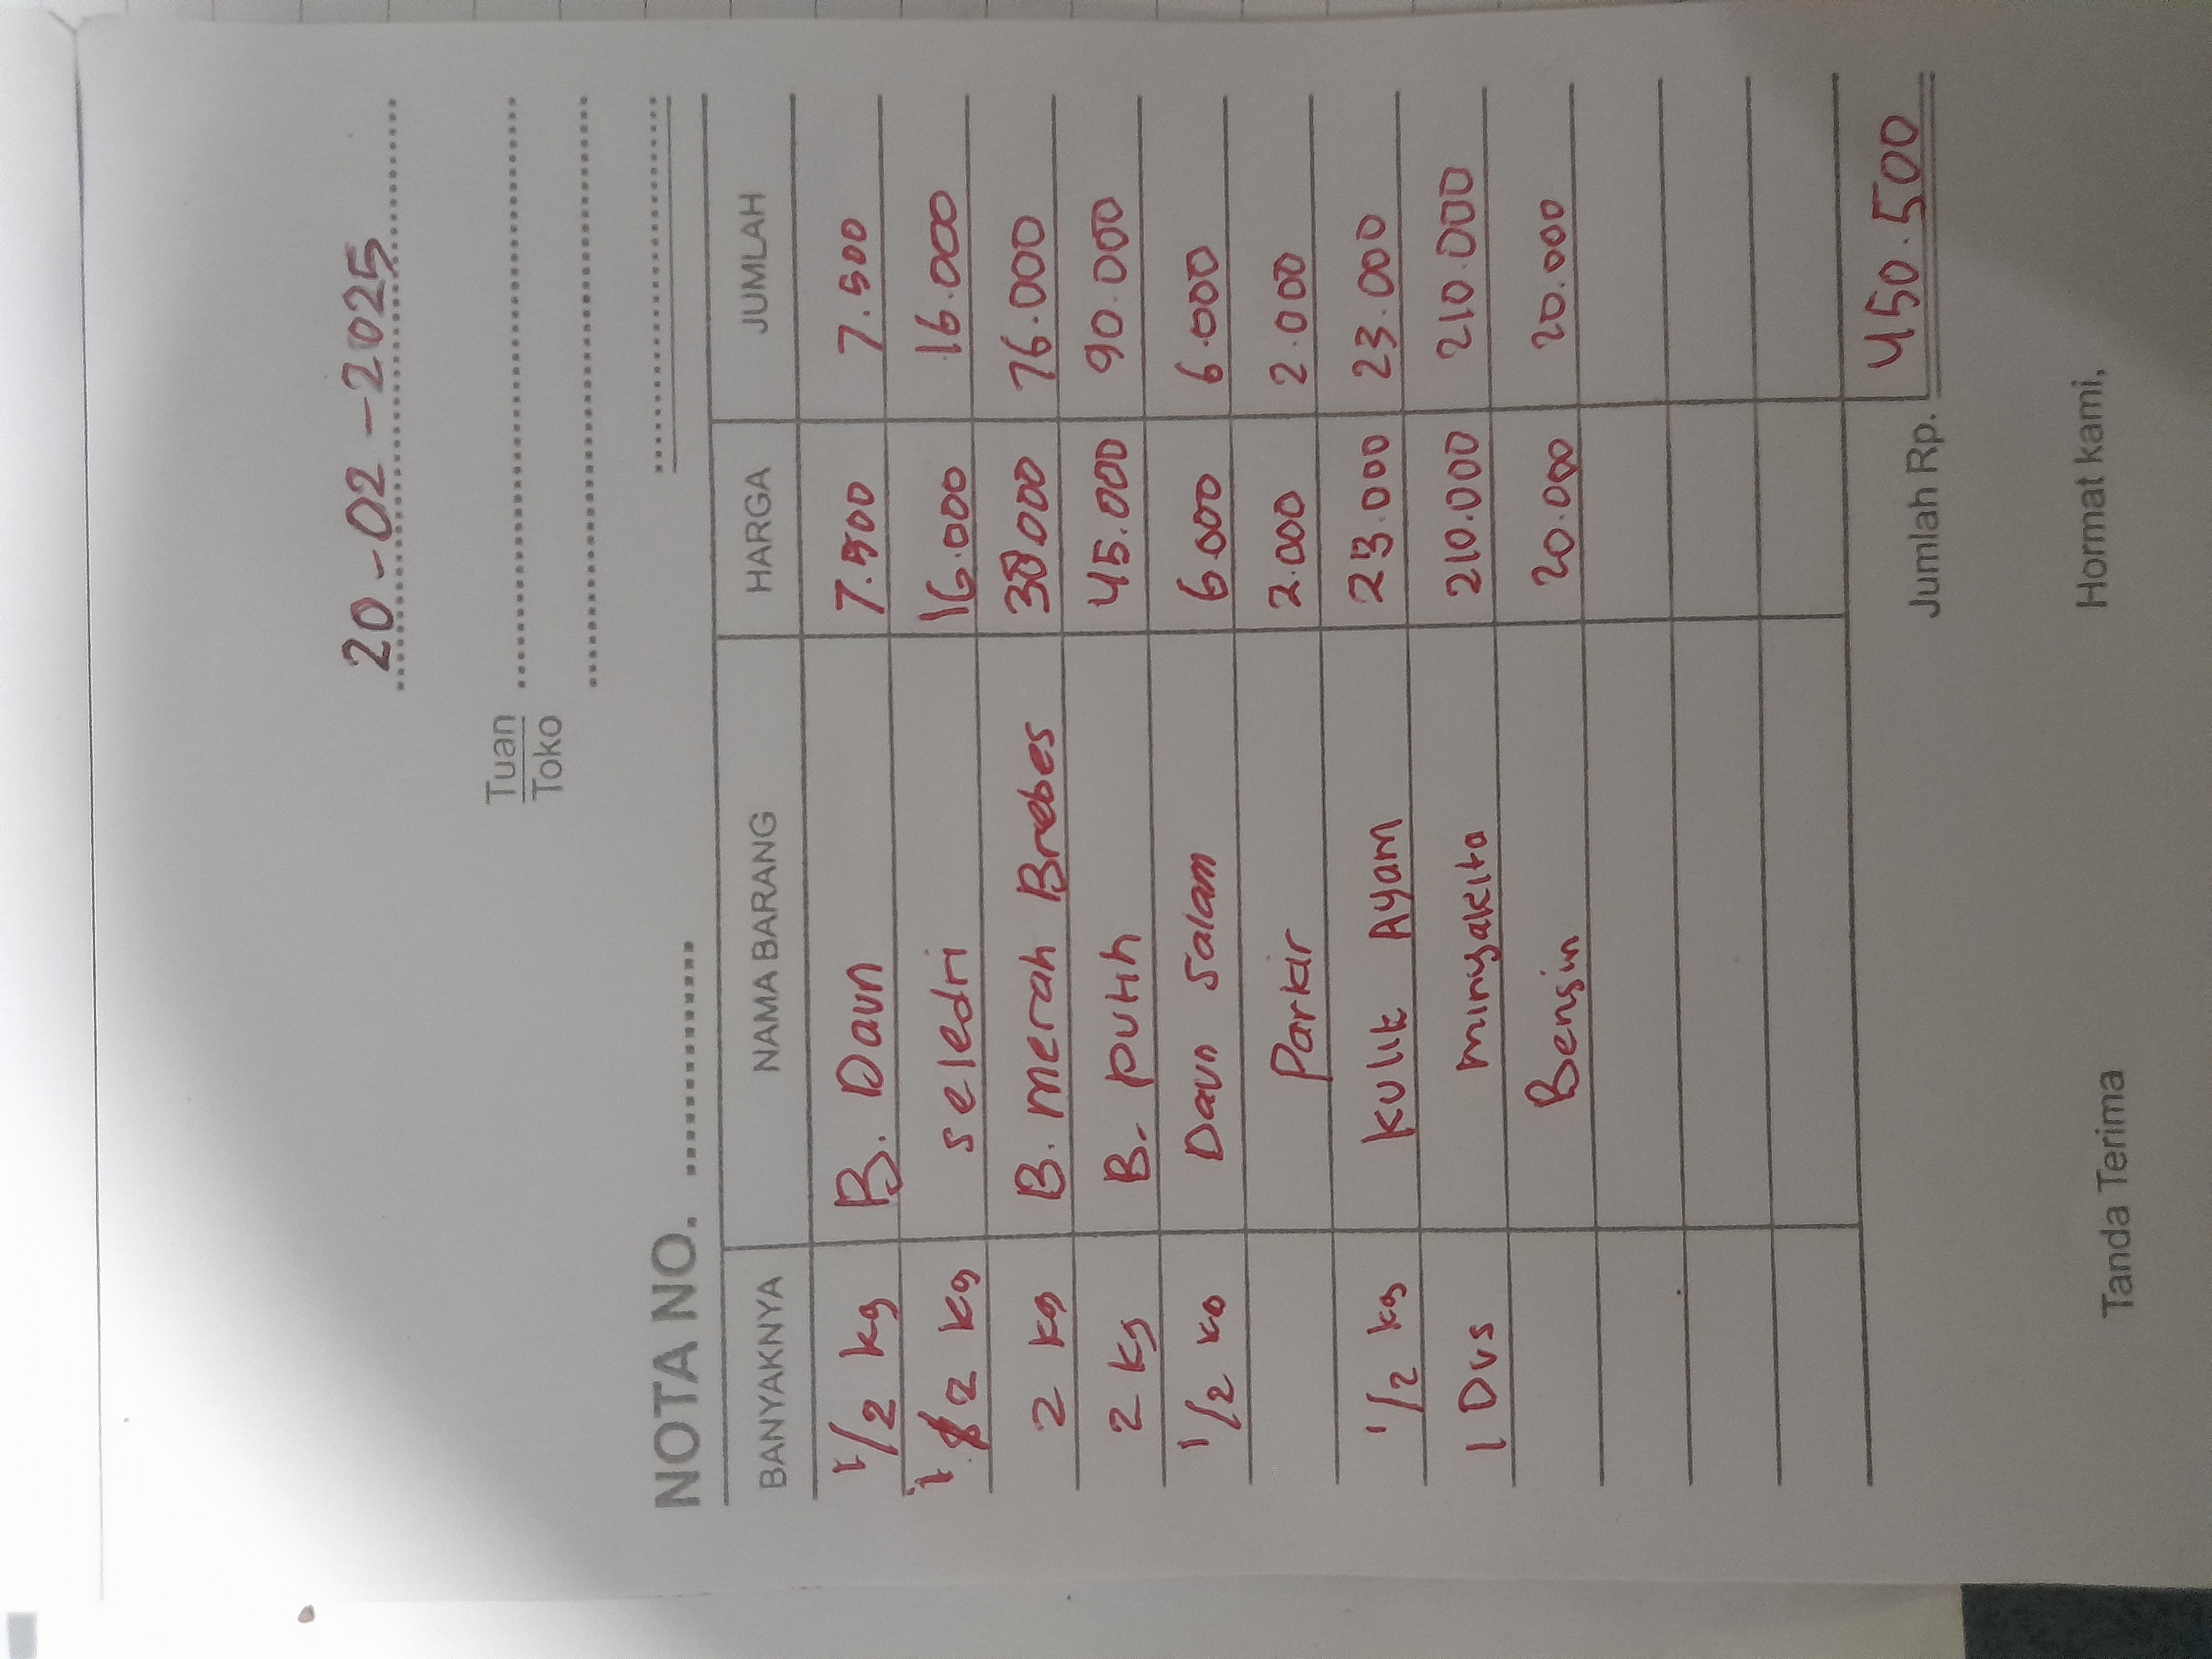 20-02-2025
Tuan
Toko
NOTA NO.
BANYAKNYA NAMA BARANG HARGA JUMLAH
1/2 kg B. Daun 7.500 7.500
1/2 kg seledri 16.000 16.000
2 kg B. merah Brebes 38000 76.000
2 kg B. putih 45.000 90.000
1/2 kg Daun Salam 6.000 6.000
Parkir 2.000 2.000
1/2 kg Kulit Ayam 23.000 23.000
1 Dus minyakita 210.000 210.000
Bensin 20.000 20.000
Jumlah Rp. 450.500
Tanda Terima Hormat kami,